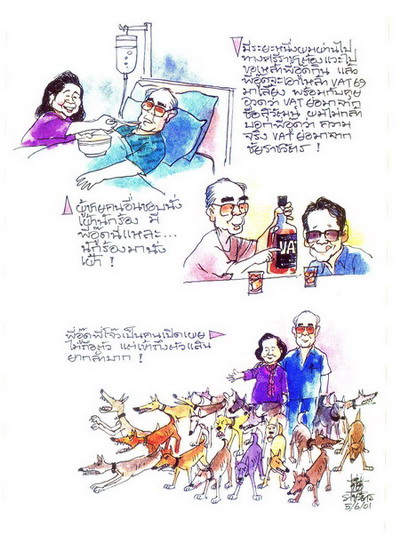 มีระยะหนึ่งผมผ่านไป
ทางศรีราชาต้องแวะไป
ขอเหล้าพี่อู๊ดกิน แล้ว
พี่อู๊ดจะเอาเหล้า VAT 69
มาเลี้ยง พร้อมกับคุย
อวดว่า VAT ย่อมาจาก
บอกพี่อู๊ดว่า ความ
จริง VAT ย่อมาจาก
VAT
ผู้ชายคนอื่นชอบนั่ง
เฝ้านักร้อง มี
พี่อู๊ดนี่แหละ...
นักร้องมานั่ง
เฝ้า !
พี่อู๊ดพี่โจ๊วเป็นคนเปิดเผย
ไม่ถือตัว แต่เข้าถึงตัวแสน
ยากลำบาก !
5/6/01